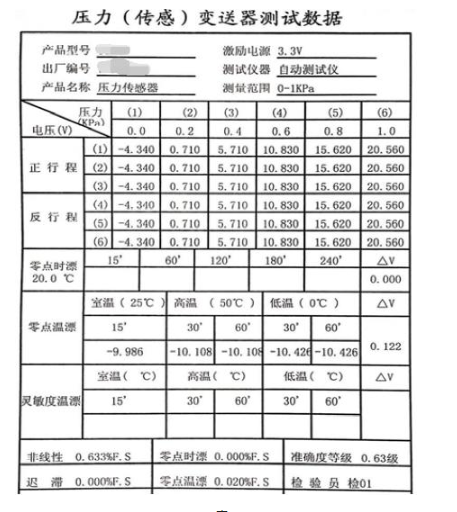 压力(传感)变送器测试数据
产品型号 激励电源 3.3V
出厂编号 测试仪器 自动测试仪
产品名称 压力传感器 测量范围 0-1KPa
压力(KPa) (1) (2) (3) (4) (5) (6)
电压(V) 0.0 0.2 0.4 0.6 0.8 1.0
正行程 (1) -4.340 0.710 5.710 10.830 15.620 20.560
(2) -4.340 0.710 5.710 10.830 15.620 20.560
(3) -4.340 0.710 5.710 10.830 15.620 20.560
反行程 (4) -4.340 0.710 5.710 10.830 15.620 20.560
(5) -4.340 0.710 5.710 10.830 15.620 20.560
(6) -4.340 0.710 5.710 10.830 15.620 20.560
零点时漂 15' 60' 120' 180' 240' △V
20.0 ℃ 0.000
室温(25℃) 高温 (50℃) 低温(0℃) △V
零点温漂 15' 30' 60' 30' 60'
-9.986 -10.108 -10.108 -10.426 -10.426 0.122
室温( ℃) 高温( ℃) 低温( ℃) △V
灵敏度温漂 15' 30' 60' 30' 60'
非线性 0.633%F.S 零点时漂 0.000%F.S 准确度等级 0.63级
迟 滞 0.000%F.S 零点温漂 0.020%F.S 检 验 员 检01